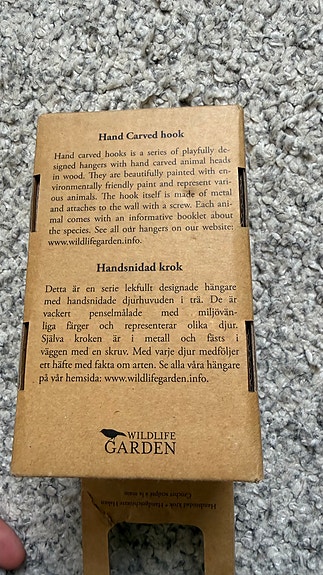 Hand Carved hook
Hand carved hooks is a series of playfully de-
signed hangers with hand carved animal heads
in wood. They are beautifully painted with en-
vironmentally friendly paint and represent vari-
ous animals. The hook itself is made of metal
and attaches to the wall with a screw. Each ani-
mal comes with an informative booklet about
the species. See all our hangers on our website:
www.wildlifegarden.info.
Handsnidad krok
Detta är en serie lekfullt designade hängare
med handsnidade djurhuvuden i trä. De är
vackert penselmålade med miljövän-
liga färger och representerar olika djur.
Själva kroken är i metall och fästs i
väggen med en skruv. Med varje djur medföljer
ett häfte med fakta om arten. Se alla våra hängare
på vår hemsida: www.wildlifegarden.info.
WILDLIFE
GARDEN